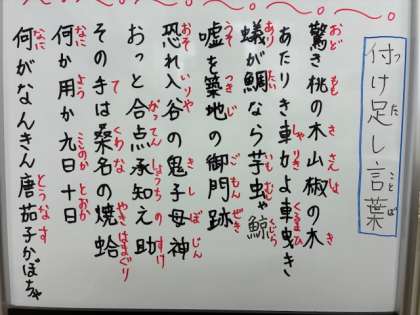 付け足し言葉
驚き桃の木山椒の木
あたりき車力よ車曳き
蟻が鯛なら芋虫ゃ鯨
嘘を築地の御門跡
恐れ入谷の鬼子母神
おっと合点承知之助
その手は桑名の焼蛤
何か用か九日十日
何がなんきん唐茄子かぼちゃ